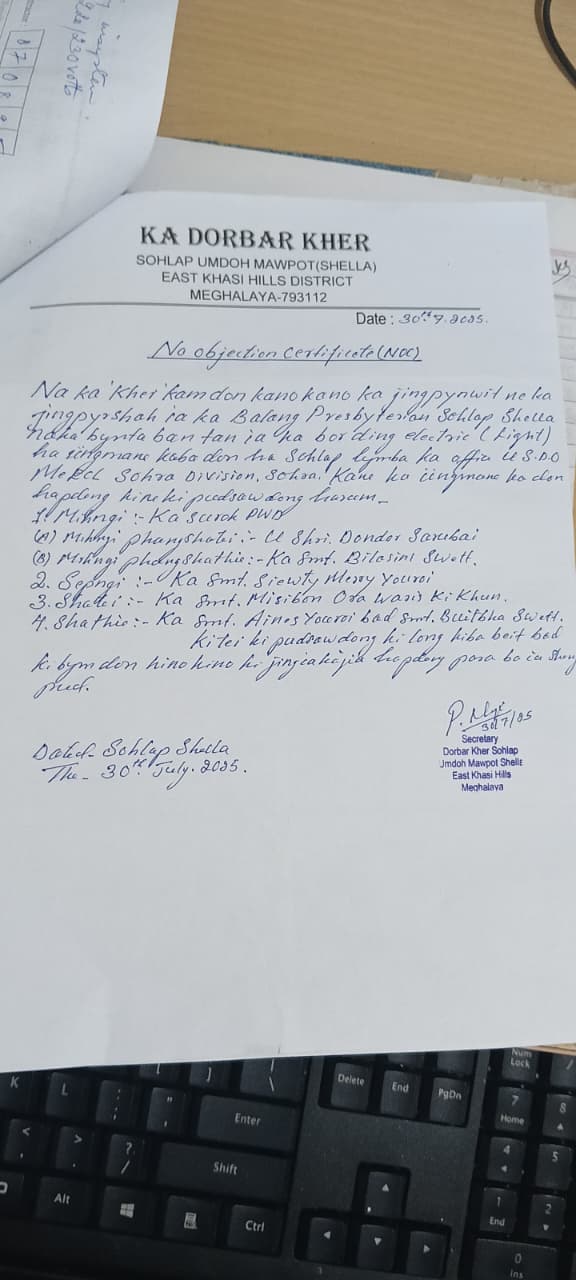 KA DORBAR KHER
SOHLAP UMDOH MAWPOT(SHELLA)
EAST KHASI HILLS DISTRICT
MEGHALAYA-793112
Date : 30th 7. 2025.
No objection Certificate (NOC)
Na ka 'Kher' kam don kano kano ka jingpynwit ne ka
jingpyrshah ia ka Balang Presbyterian Sohlap Shella
naka bynta ban tan ia ka bording electric (Light)
ha iingmane kaba don ha Sohlap lymba ka office U S.D.O
MePCL Sohra Division, Sohra. Kane ka iingmane ka don
hapdeng kine ki pudsaw dong harum -
1. Mihngi :- Ka Surok PWD
(A) Mihngi phangshatei :- U Shri. Dondor Sarubai
(B) Mihngi phangshathie :- Ka Smt. Bilasini Swett.
2. Sepngi :- Ka Smt. Siewty Merry Youroi
3. Shatei :- Ka Smt. Misibon Ora Waris Ki Khun.
4. Shathie :- Ka Smt. Aines Youroi bad Smt. Buitbha Swett.
Kitei ki pudsaw dong ki long kiba beit bad
ki bym don kino kino ki jingiakajia hapdeng para ba ia
pud.
30/7/25
Secretary
Dorbar Kher Sohlap
Umdoh Mawpot Shella
East Khasi Hills
Meghalaya
Dated - Sohlap Shella
The - 30th July. 2025.
K
L
:
;
"
'
]
\
<
,
>
.
?
/
Enter
Shift
Alt
Ctrl
Delete
End
PgDn
Num
Lock
/
7
Home
8
4
5
1
End
2
0
Ins